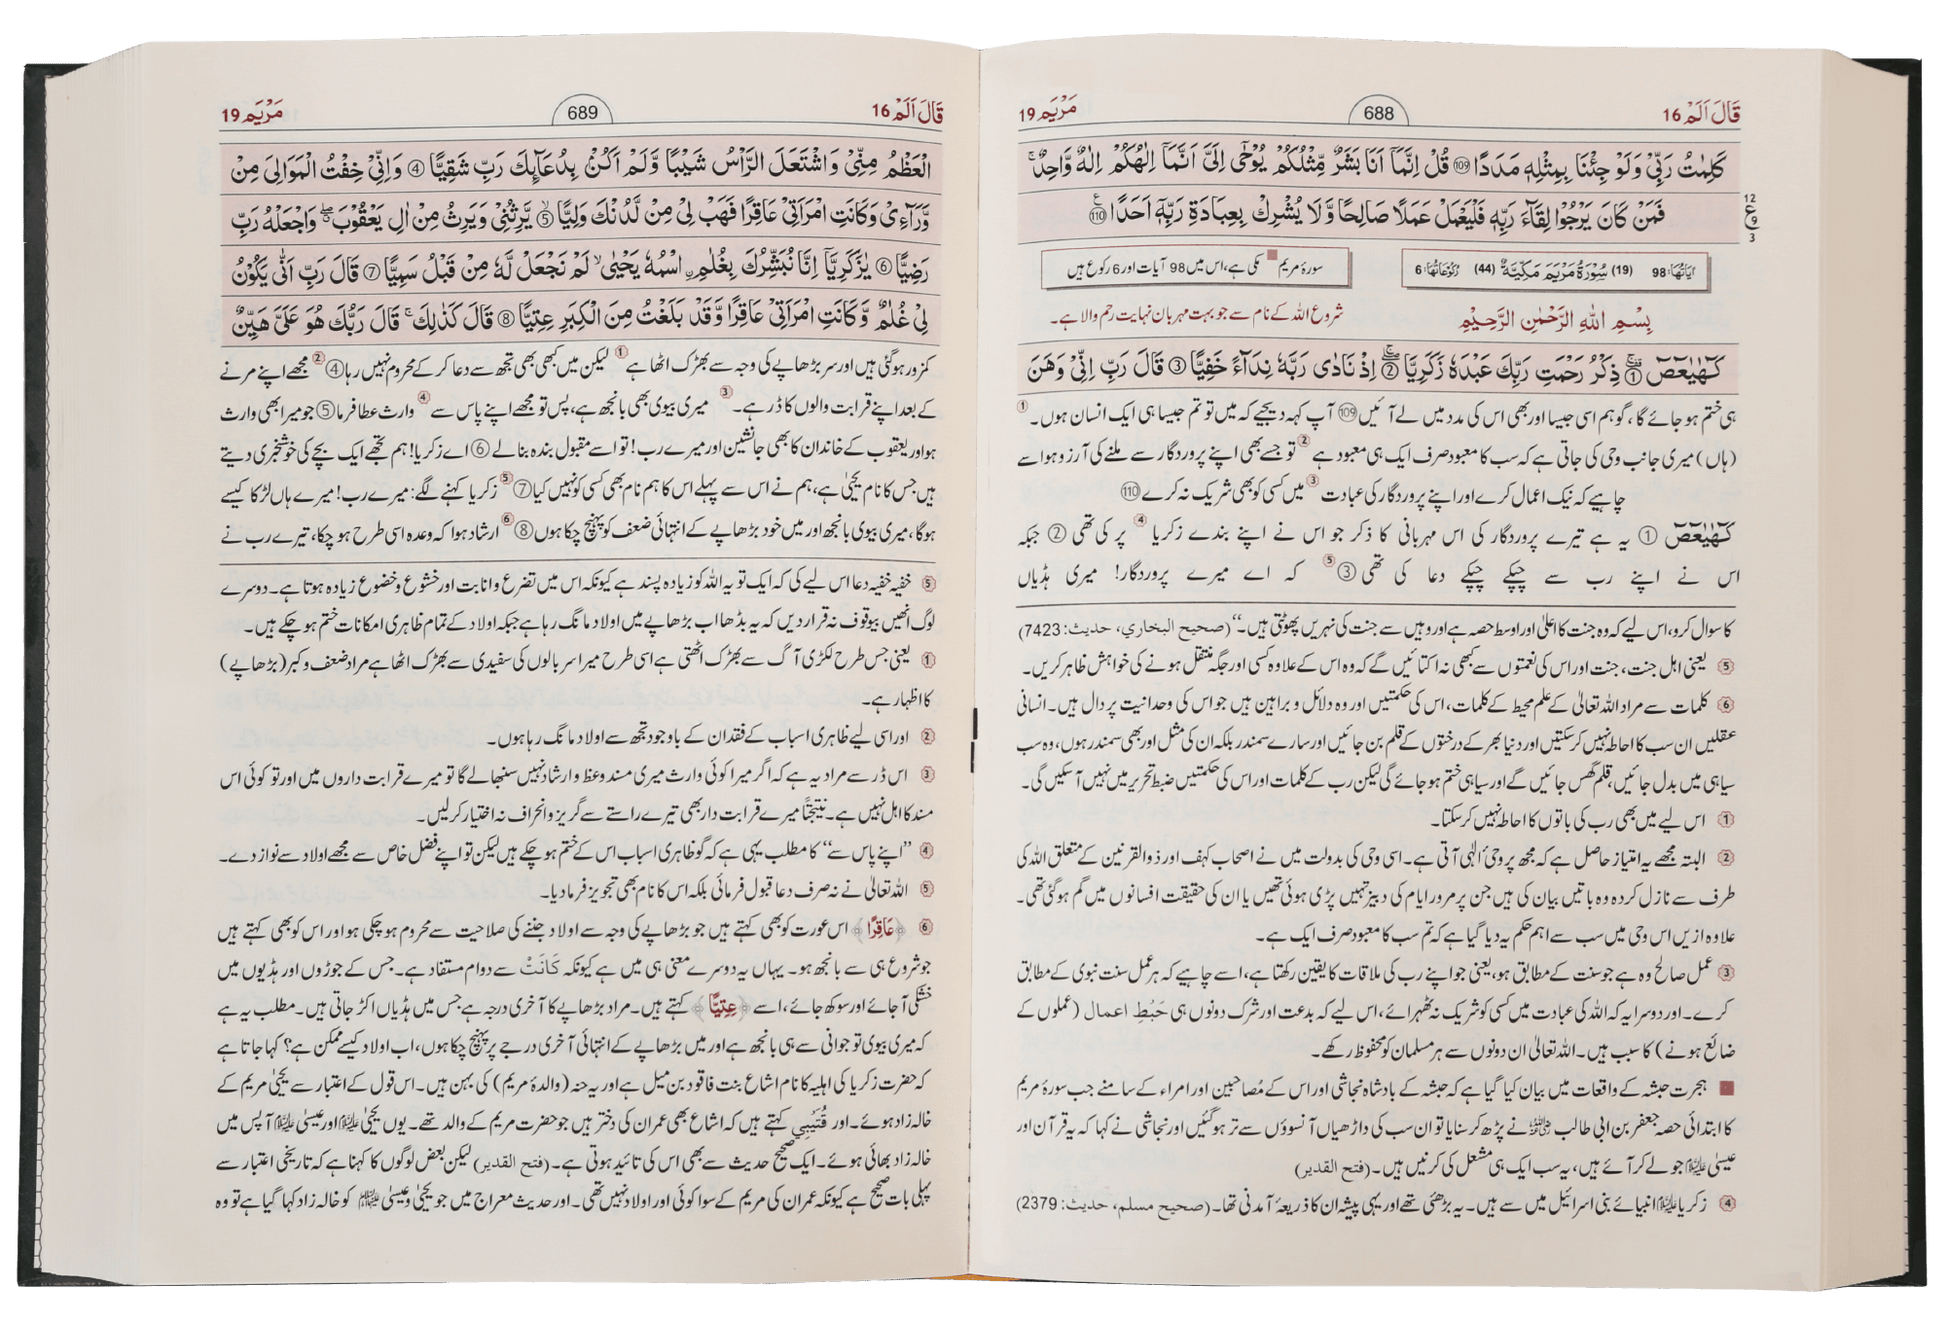 قَالَ اَلَمْ 16
688
مَرْيَم 19
كَلِمٰتُ رَبِّيْ وَلَوْ جِئْنَا بِمِثْلِهٖ مَدَدًا ⑩⑨ قُلْ اِنَّمَآ اَنَا بَشَرٌ مِّثْلُكُمْ يُوْحٰٓى اِلَيَّ اَنَّمَآ اِلٰهُكُمْ اِلٰهٌ وَّاحِدٌ ۚ
فَمَنْ كَانَ يَرْجُوْا لِقَآءَ رَبِّهٖ فَلْيَعْمَلْ عَمَلًا صَالِحًا وَّلَا يُشْرِكْ بِعِبَادَةِ رَبِّهٖٓ اَحَدًا ⑪⓪
12 ع 9 3
اٰيَاتُهَا: 98 (19) سُوْرَةُ مَرْيَمَ مَكِّيَّةٌ (44) رُكُوْعَاتُهَا: 6
سورۂ مریم مکی ہے، اس میں 98 آیات اور 6 رکوع ہیں
بِسْمِ اللهِ الرَّحْمٰنِ الرَّحِيْمِ
شروع اللہ کے نام سے جو بہت مہربان نہایت رحم والا ہے۔
كٓهٰيٰعٓصٓ ① ذِكْرُ رَحْمَتِ رَبِّكَ عَبْدَهٗ زَكَرِيَّا ② اِذْ نَادٰى رَبَّهٗ نِدَآءً خَفِيًّا ③ قَالَ رَبِّ اِنِّيْ وَهَنَ
ہی ختم ہو جائے گا، گو ہم اسی جیسا اور بھی اس کی مدد میں لے آئیں 109 آپ کہہ دیجیے کہ میں تو تم جیسا ہی ایک انسان ہوں۔ ①
(ہاں) میری جانب وحی کی جاتی ہے کہ سب کا معبود صرف ایک ہی معبود ہے ② تو جسے بھی اپنے پروردگار سے ملنے کی آرزو ہو اسے
چاہیے کہ نیک اعمال کرے اور اپنے پروردگار کی عبادت ③ میں کسی کو بھی شریک نہ کرے 110
كٓهٰيٰعٓصٓ ① یہ ہے تیرے پروردگار کی اس مہربانی کا ذکر جو اس نے اپنے بندے زکریا ④ پر کی تھی ② جبکہ
اس نے اپنے رب سے چپکے چپکے دعا کی تھی ③ ⑤ کہ اے میرے پروردگار! میری ہڈیاں
کا سوال کرو، اس لیے کہ وہ جنت کا اعلیٰ اور اوسط حصہ ہے اور وہیں سے جنت کی نہریں پھوٹتی ہیں۔‘‘ (صحيح البخاري، حدیث: 7423)
⑤ یعنی اہل جنت، جنت اور اس کی نعمتوں سے کبھی نہ اکتائیں گے کہ وہ اس کے علاوہ کسی اور جگہ منتقل ہونے کی خواہش ظاہر کریں۔
⑥ کلمات سے مراد اللہ تعالیٰ کے علم محیط کے کلمات، اس کی حکمتیں اور وہ دلائل و براہین ہیں جو اس کی وحدانیت پر دال ہیں۔ انسانی
عقلیں ان سب کا احاطہ نہیں کر سکتیں اور دنیا بھر کے درختوں کے قلم بن جائیں اور سارے سمندر بلکہ ان کی مثل اور بھی سمندر ہوں، وہ سب
سیاہی میں بدل جائیں، قلم گھس جائیں گے اور سیاہی ختم ہو جائے گی لیکن رب کے کلمات اور اس کی حکمتیں ضبط تحریر میں نہیں آ سکیں گی۔
① اس لیے میں بھی رب کی باتوں کا احاطہ نہیں کر سکتا۔
② البتہ مجھے یہ امتیاز حاصل ہے کہ مجھ پر وحیٔ الٰہی آتی ہے۔ اسی وحی کی بدولت میں نے اصحاب کہف اور ذوالقرنین کے متعلق اللہ کی
طرف سے نازل کردہ وہ باتیں بیان کی ہیں جن پر مرور ایام کی دبیز تہیں پڑی ہوئی تھیں یا ان کی حقیقت افسانوں میں گم ہو گئی تھی۔
علاوہ ازیں اس وحی میں سب سے اہم حکم یہ دیا گیا ہے کہ تم سب کا معبود صرف ایک ہے۔
③ عمل صالح وہ ہے جو سنت کے مطابق ہو، یعنی جو اپنے رب کی ملاقات کا یقین رکھتا ہے، اسے چاہیے کہ ہر عمل سنت نبوی کے مطابق
کرے۔ اور دوسرا یہ کہ اللہ کی عبادت میں کسی کو شریک نہ ٹھہرائے، اس لیے کہ بدعت اور شرک دونوں ہی حَبْطِ اعمال (عملوں کے
ضائع ہونے) کا سبب ہیں۔ اللہ تعالیٰ ان دونوں سے ہر مسلمان کو محفوظ رکھے۔
ہجرت حبشہ کے واقعات میں بیان کیا گیا ہے کہ حبشہ کے بادشاہ نجاشی اور اس کے مُصاحبین اور امراء کے سامنے جب سورۂ مریم
کا ابتدائی حصہ جعفر بن ابی طالب ؓ نے پڑھ کر سنایا تو ان سب کی داڑھیاں آنسوؤں سے تر ہو گئیں اور نجاشی نے کہا کہ یہ قرآن اور
عیسیٰ ؑ جو لے کر آئے ہیں، یہ سب ایک ہی مشعل کی کرنیں ہیں۔ (فتح القدیر)
④ زکریا ؑ انبیائے بنی اسرائیل میں سے ہیں۔ یہ بڑھئی تھے اور یہی پیشہ ان کا ذریعۂ آمدنی تھا۔ (صحيح مسلم، حدیث: 2379)
قَالَ اَلَمْ 16
689
مَرْيَم 19
الْعَظْمُ مِنِّيْ وَاشْتَعَلَ الرَّاْسُ شَيْبًا وَّلَمْ اَكُنْۢ بِدُعَآئِكَ رَبِّ شَقِيًّا ④ وَاِنِّيْ خِفْتُ الْمَوَالِيَ مِنْ
وَّرَآءِيْ وَكَانَتِ امْرَاَتِيْ عَاقِرًا فَهَبْ لِيْ مِنْ لَّدُنْكَ وَلِيًّا ⑤ يَّرِثُنِيْ وَيَرِثُ مِنْ اٰلِ يَعْقُوْبَ وَاجْعَلْهُ رَبِّ
رَضِيًّا ⑥ يٰزَكَرِيَّآ اِنَّا نُبَشِّرُكَ بِغُلٰمِ اِۨسْمُهٗ يَحْيٰى لَمْ نَجْعَلْ لَّهٗ مِنْ قَبْلُ سَمِيًّا ⑦ قَالَ رَبِّ اَنّٰى يَكُوْنُ
لِيْ غُلٰمٌ وَّكَانَتِ امْرَاَتِيْ عَاقِرًا وَّقَدْ بَلَغْتُ مِنَ الْكِبَرِ عِتِيًّا ⑧ قَالَ كَذٰلِكَ ۚ قَالَ رَبُّكَ هُوَ عَلَيَّ هَيِّنٌ
کمزور ہو گئی ہیں اور سر بڑھاپے کی وجہ سے بھڑک اٹھا ہے ① لیکن میں کبھی بھی تجھ سے دعا کر کے محروم نہیں رہا ④ ② مجھے اپنے مرنے
کے بعد اپنے قرابت والوں کا ڈر ہے۔ ③ میری بیوی بھی بانجھ ہے، پس تو مجھے اپنے پاس سے ④ وارث عطا فرما ⑤ جو میرا بھی وارث
ہو اور یعقوب کے خاندان کا بھی جانشین اور میرے رب! تو اسے مقبول بندہ بنا لے ⑥ اے زکریا! ہم تجھے ایک بچے کی خوشخبری دیتے
ہیں جس کا نام یحییٰ ہے، ہم نے اس سے پہلے اس کا ہم نام بھی کسی کو نہیں کیا ⑦ ⑤ زکریا کہنے لگے: میرے رب! میرے ہاں لڑکا کیسے
ہوگا، میری بیوی بانجھ اور میں خود بڑھاپے کے انتہائی ضعف کو پہنچ چکا ہوں ⑧ ⑥ ارشاد ہوا کہ وعدہ اسی طرح ہو چکا، تیرے رب نے
⑤ خفیہ خفیہ دعا اس لیے کی کہ ایک تو یہ اللہ کو زیادہ پسند ہے کیونکہ اس میں تضرع و انابت اور خشوع و خضوع زیادہ ہوتا ہے۔ دوسرے
لوگ انھیں بیوقوف نہ قرار دیں کہ یہ بڈھا اب بڑھاپے میں اولاد مانگ رہا ہے جبکہ اولاد کے تمام ظاہری امکانات ختم ہو چکے ہیں۔
① یعنی جس طرح لکڑی آگ سے بھڑک اٹھتی ہے اسی طرح میرا سر بالوں کی سفیدی سے بھڑک اٹھا ہے مراد ضعف و کبر (بڑھاپے)
کا اظہار ہے۔
② اور اسی لیے ظاہری اسباب کے فقدان کے باوجود تجھ سے اولاد مانگ رہا ہوں۔
③ اس ڈر سے مراد یہ ہے کہ اگر میرا کوئی وارث میری مسند وعظ و ارشاد نہیں سنبھالے گا تو میرے قرابت داروں میں اور تو کوئی اس
مسند کا اہل نہیں ہے۔ نتیجتًا میرے قرابت دار بھی تیرے راستے سے گریز و انحراف نہ اختیار کر لیں۔
④ ’’اپنے پاس سے‘‘ کا مطلب یہی ہے کہ گو ظاہری اسباب اس کے ختم ہو چکے ہیں لیکن تو اپنے فضل خاص سے مجھے اولاد سے نواز دے۔
⑤ اللہ تعالیٰ نے نہ صرف دعا قبول فرمائی بلکہ اس کا نام بھی تجویز فرما دیا۔
⑥ ﴿عَاقِرًا﴾ اس عورت کو بھی کہتے ہیں جو بڑھاپے کی وجہ سے اولاد جننے کی صلاحیت سے محروم ہو چکی ہو اور اس کو بھی کہتے ہیں
جو شروع ہی سے بانجھ ہو۔ یہاں یہ دوسرے معنی ہی میں ہے کیونکہ كَانَتْ سے دوام مستفاد ہے۔ جس کے جوڑوں اور ہڈیوں میں
خشکی آ جائے اور سوکھ جائے، اسے ﴿عِتِيًّا﴾ کہتے ہیں۔ مراد بڑھاپے کا آخری درجہ ہے جس میں ہڈیاں اکڑ جاتی ہیں۔ مطلب یہ ہے
کہ میری بیوی تو جوانی سے ہی بانجھ ہے اور میں بڑھاپے کے انتہائی آخری درجے پر پہنچ چکا ہوں، اب اولاد کیسے ممکن ہے؟ کہا جاتا ہے
کہ حضرت زکریا کی اہلیہ کا نام اشاع بنت فاقود بن میل ہے اور یہ حنہ (والدۂ مریم) کی بہن ہیں۔ اس قول کے اعتبار سے یحییٰ مریم کے
خالہ زاد ہوئے۔ اور قُتَیْبِی کہتے ہیں کہ اشاع بھی عمران کی دختر ہیں جو حضرت مریم کے والد تھے۔ یوں یحییٰ ؑ اور عیسیٰ ؑ آپس میں
خالہ زاد بھائی ہوئے۔ ایک صحیح حدیث سے بھی اس کی تائید ہوتی ہے۔ (فتح القدیر) لیکن بعض لوگوں کا کہنا ہے کہ تاریخی اعتبار سے
پہلی بات صحیح ہے کیونکہ عمران کی مریم کے سوا کوئی اور اولاد نہیں تھی۔ اور حدیث معراج میں جو یحییٰ و عیسیٰ ؑ کو خالہ زاد کہا گیا ہے تو وہ